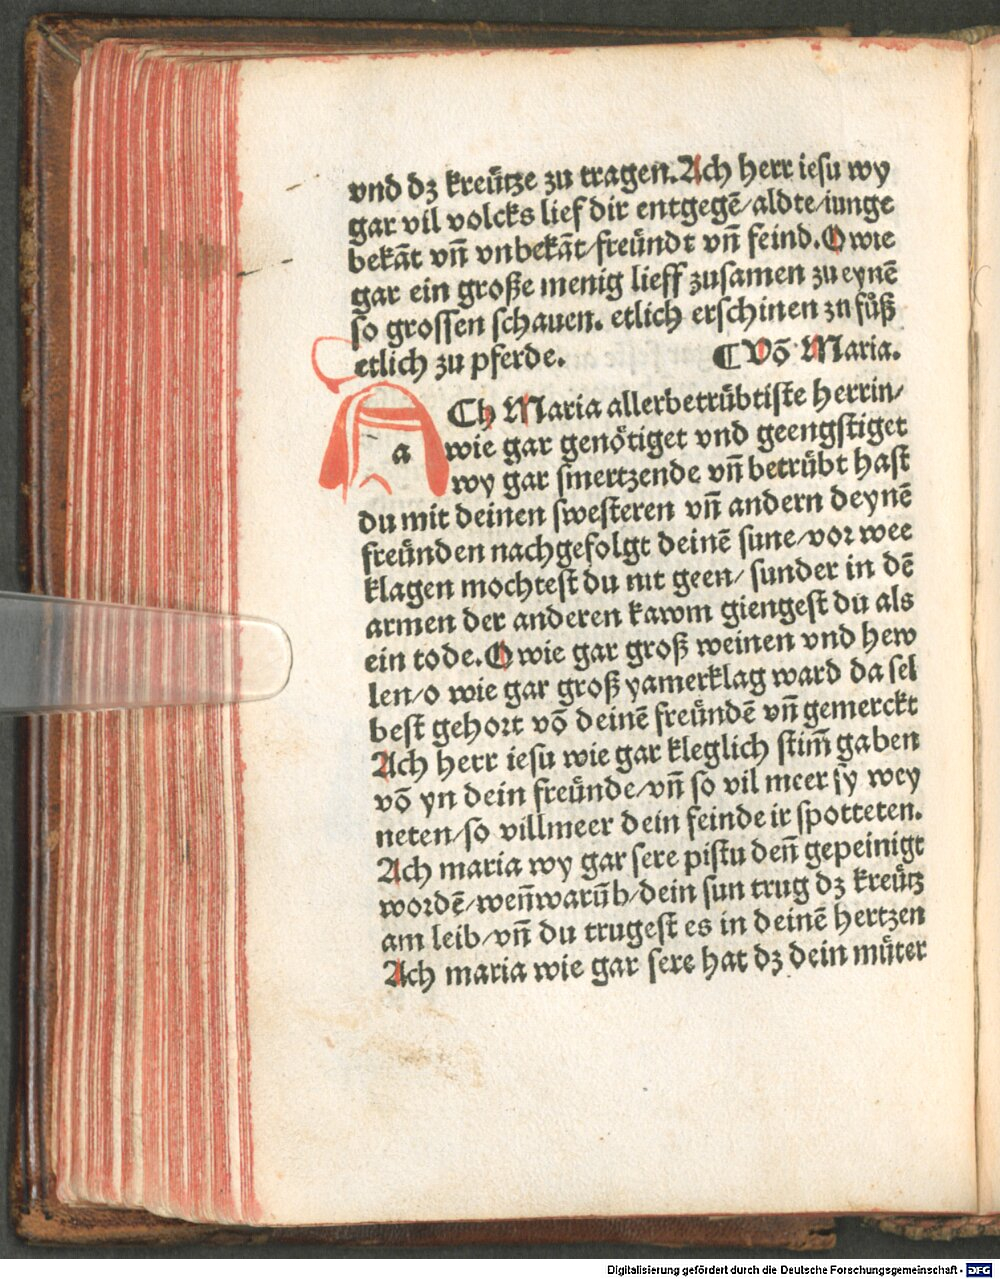 vnd dʒ kreütze zu tragen. Ach herr iesu wy
gar vil volcks lief dir entgegē/aldte/iunge
bekāt vn̄ vnbekāt/freündt vn̄ feind. O wie
gar ein große menig lieff zusamen zu eynē
so grossen schauen. etlich erschinen zu fůß
etlich zu pferde. ¶ Vō Maria.
aCh Maria allerbetrübtiste herrin/
wie gar genötiget vnd geengstiget
wy gar smertzende vn̄ betrübt hast
du mit deinen swesteren vn̄ andern deynē
freünden nachgefolgt deinē sune/vor wee
klagen mochtest du nit geen/sunder in dē
armen der anderen kawm giengest du als
ein tode. O wie gar groß weinen vnd hew
len/o wie gar groß yamerklag ward da sel
best gehort vō deinē freündē vn̄ gemerckt
Ach herr iesu wie gar kleglich stim̄ gaben
vō yn dein freünde/vn̄ so vil meer sy wey
neten/so villmeer dein feinde ir spotteten.
Ach maria wy gar sere pistu den̄ gepeinigt
wordē/wen̄ warūb/dein sun trug dʒ kreütz
am leib/vn̄ du trugest es in deinē hertzen
Ach maria wie gar sere hat dʒ dein müter
Digitalisierung gefördert durch die Deutsche Forschungsgemeinschaft - DFG